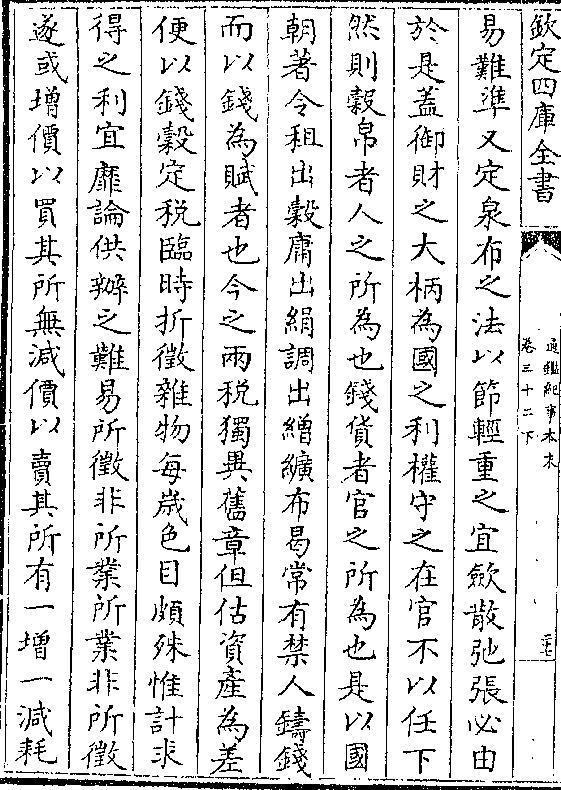 欽定四庫全書
通鑑紀事本末
卷三十二下
三七
易難準又定泉布之法以節輕重之宜斂散弛張必由
於是蓋御財之大柄為國之利權守之在官不以任下
然則穀帛者人之所為也錢貨者官之所為也是以國
朝著令租出穀庸出絹調出繒纊布曷常有禁人鑄錢
而以錢為賦者也今之兩税獨異舊章但估資產為差
便以錢穀定税臨時折徵雜物每歳色目頗殊惟計求
得之利宜靡論供辦之難易所徵非所業所業非所徵
遂或增價以買其所無減價以賣其所有一增一減耗